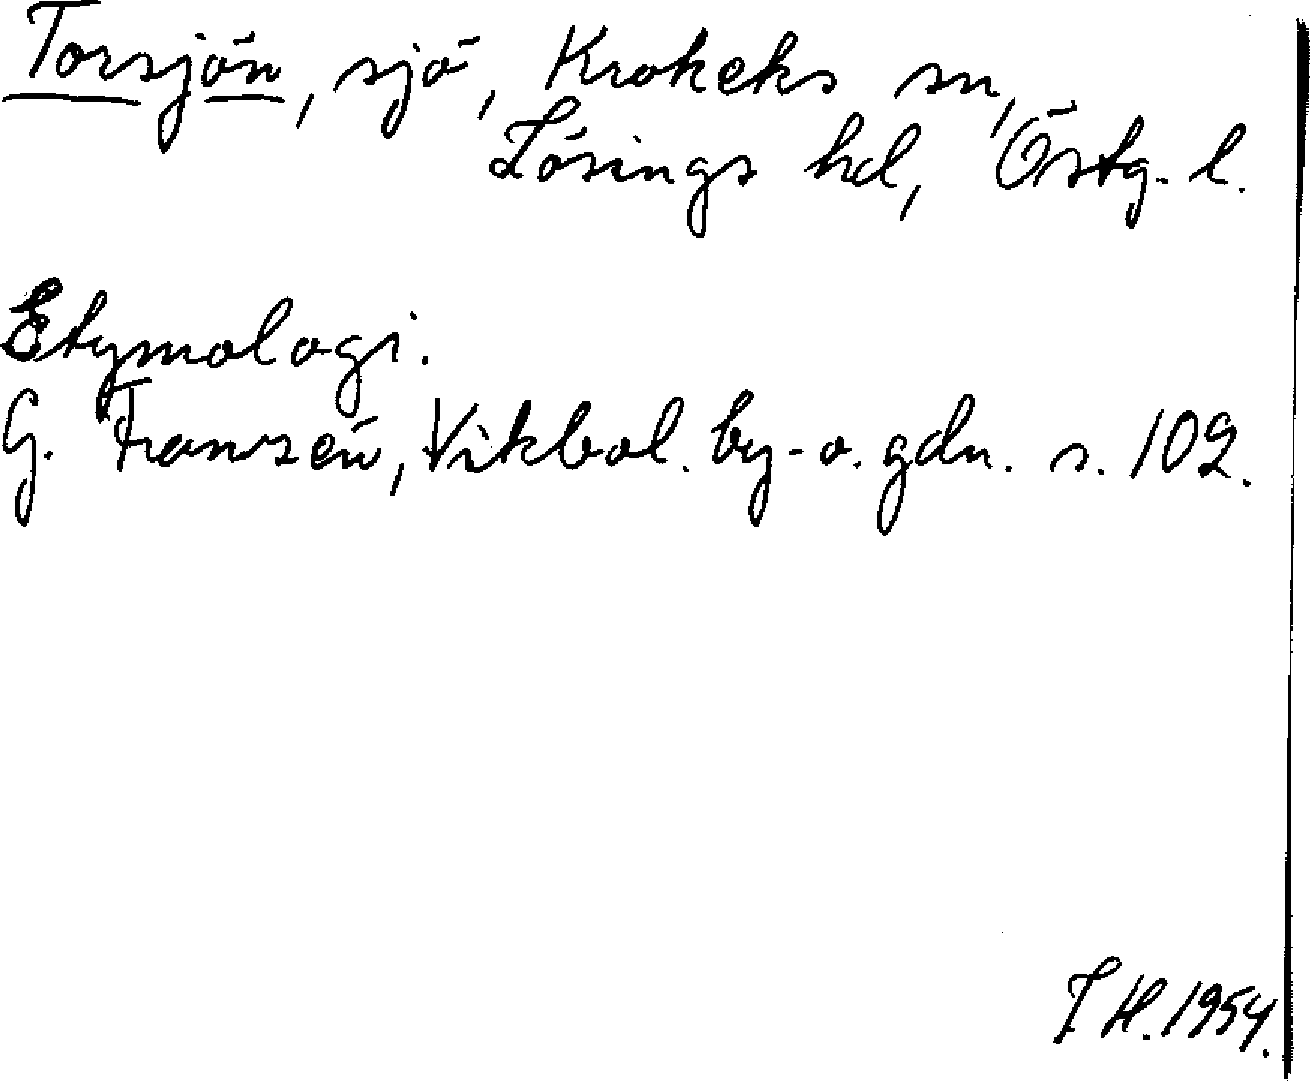 Torsjön, sjö, Krokeks sn,
Lösings hd, Östg. l.
Etymologi.
G. Franzén, Vikbol. by- o. gdn. s. 102.
I H. 1954.